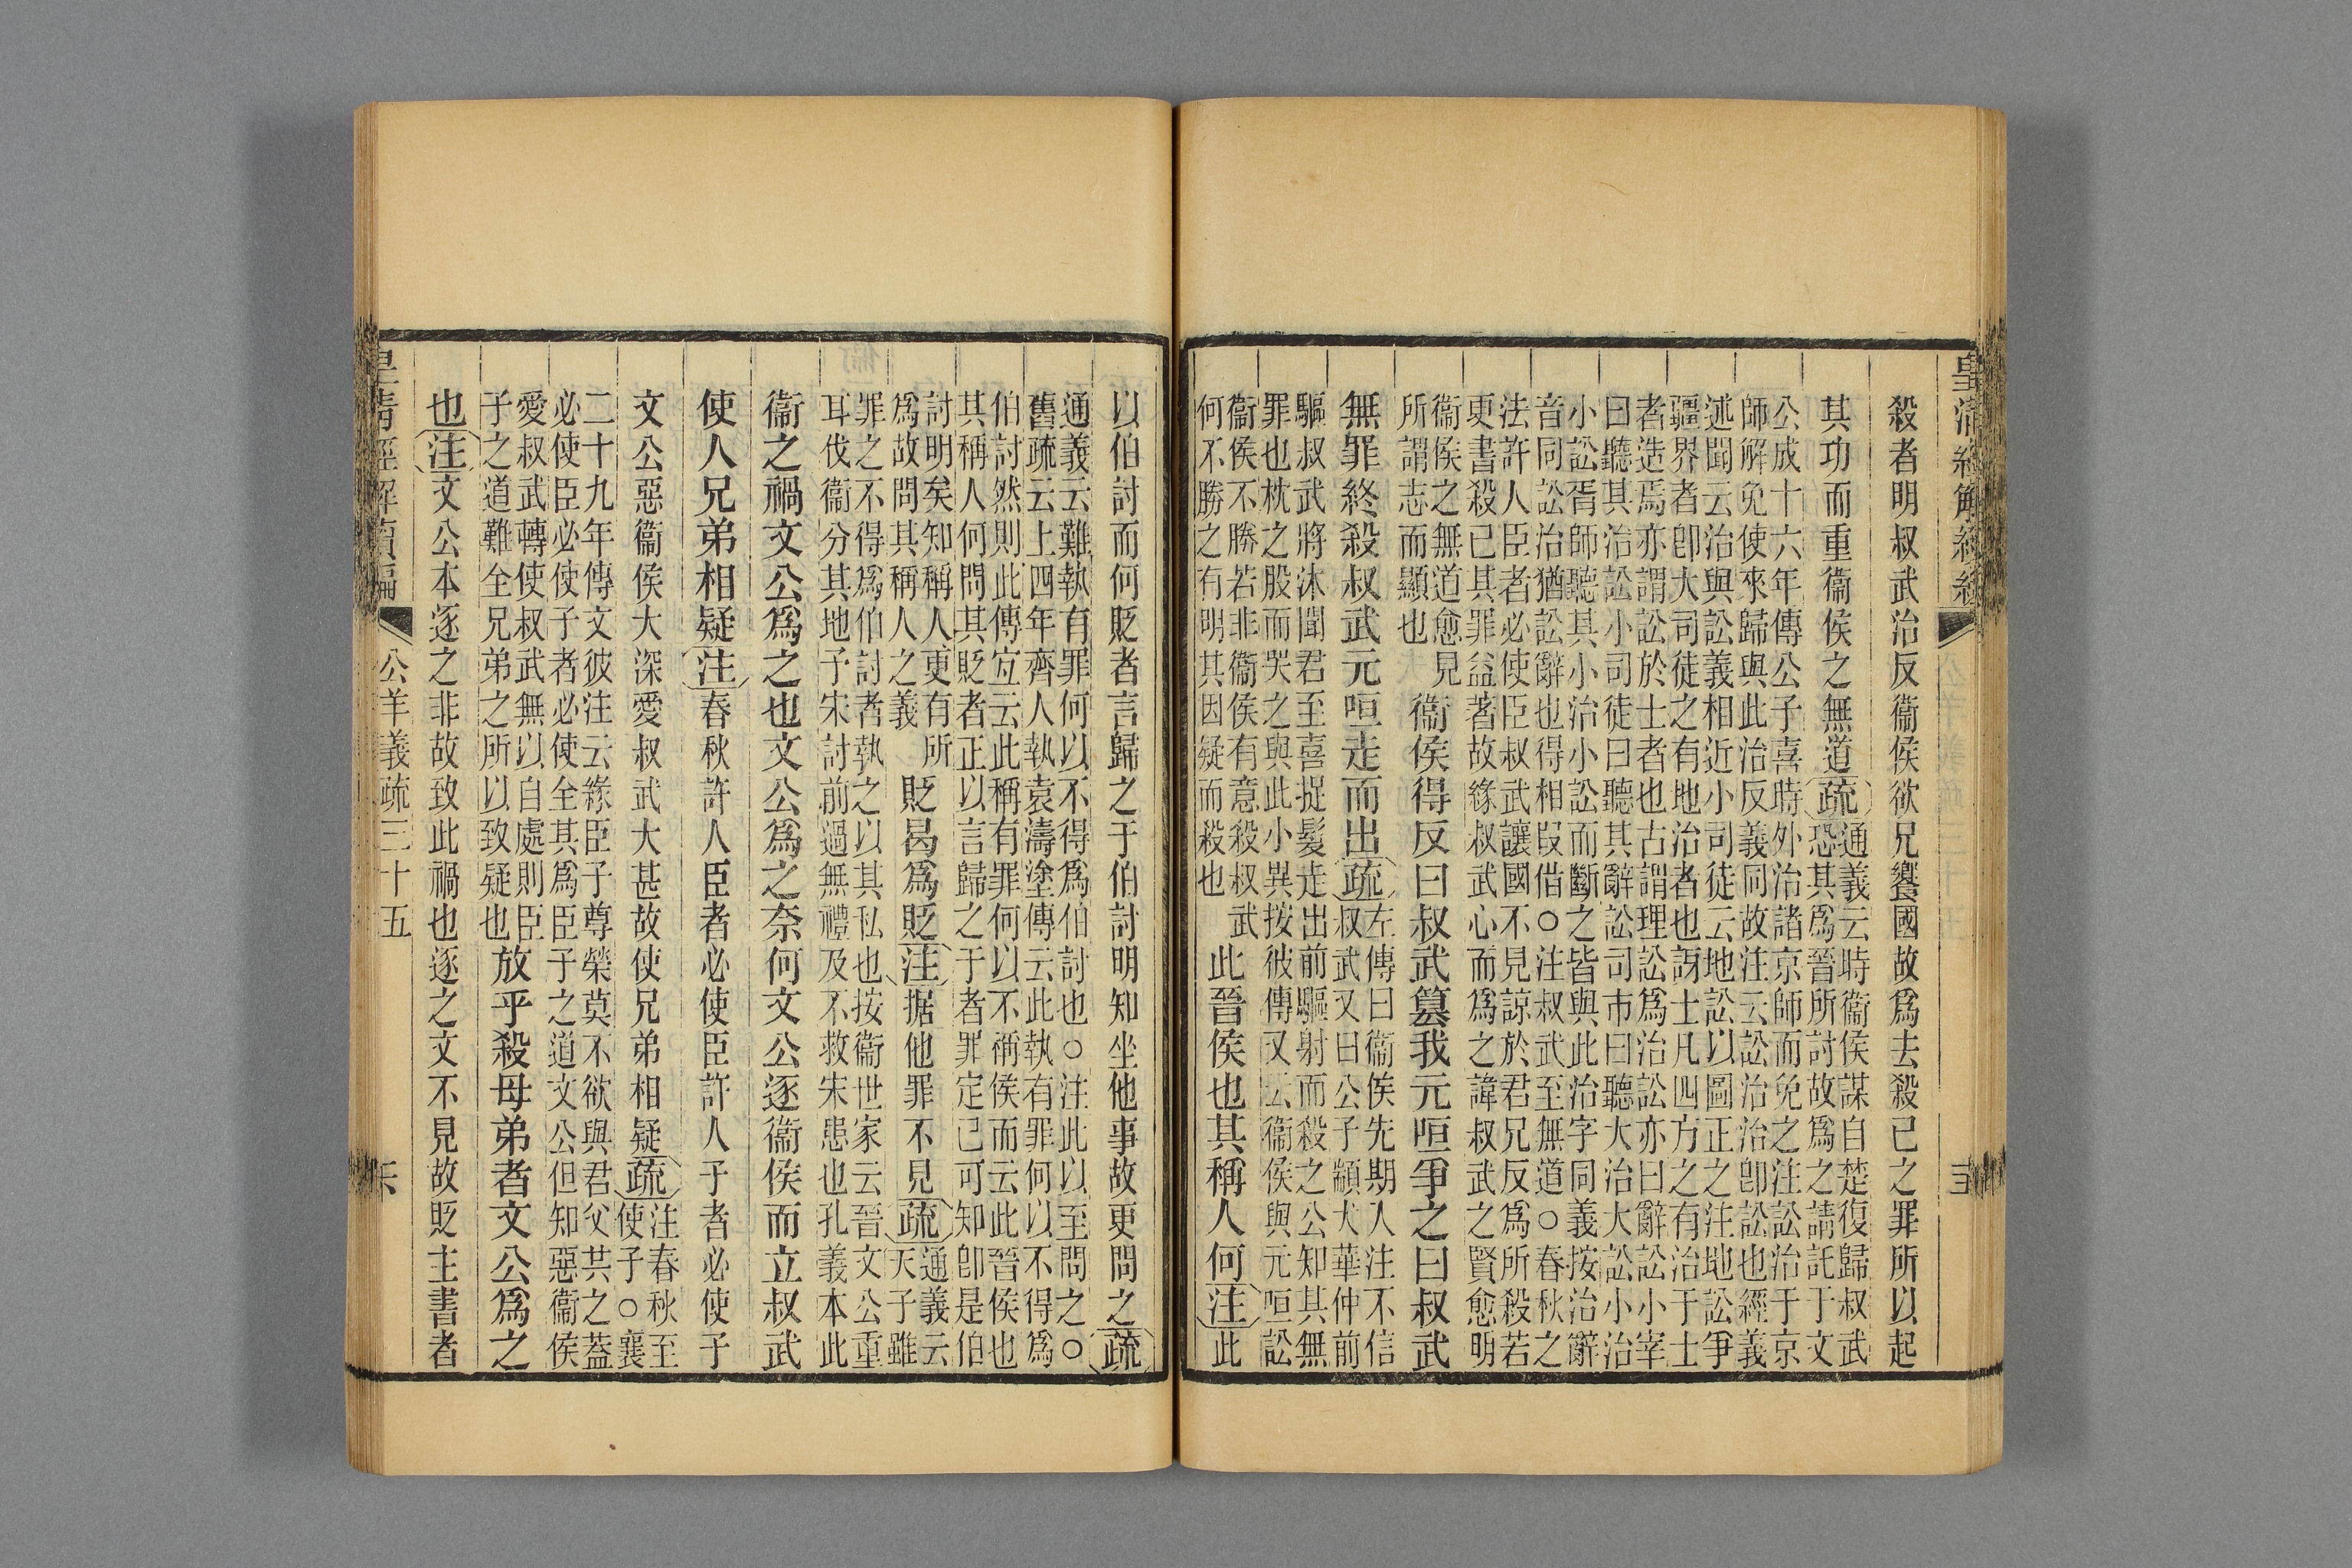 皇清經解續編
三
殺者明叔武治反衞侯欲兄饗國故爲去殺己之罪所以起
其功而重衞侯之無道疏
通義云時衞侯謀自楚復歸叔武
恐其爲晉所討故爲之請託于文
公成十六年傳公子喜時外治諸京師而免之注訟治于京
師解免使來歸與此治反義同故注云訟治治卽訟也經義
述聞云治與訟義相近小司徒云地訟以圖正之注地訟爭
疆界者卽大司徒之有地治者也訝士凡四方之有治于士
者造焉亦謂訟於士者也古謂理訟爲治訟亦曰辭訟小宰
曰聽其治訟小司徒曰聽其辭訟司市曰聽大治大訟小治
小訟胥師聽其小治小訟而斷之皆與此治字同義按治辭
音同訟治猶訟辭也得相叚偕○注叔武至無道○春秋之
法許人臣者必使臣叔武讓國不見諒於君兄反爲所殺若
更書殺已其罪益著故緣叔武心而爲之諱叔武之賢愈明
衞侯之無道愈見
所謂志而顯也
衞侯得反曰叔武簒我元咺爭之曰叔武
無罪終殺叔武元咺走而出疏
左傳曰衞侯先期人注不信
叔武又曰公子歂犬華仲前
驅叔武將沐聞君至喜捉髮走出前驅射而殺之公知其無
罪也枕之股而哭之與此小異按彼傳又云衞侯與元咺訟
衞侯不勝若非衞侯有意殺叔武
何不勝之有明其因疑而殺也
此晉侯也其稱人何注此
以伯討而何貶者言歸之于伯討明知坐他事故更問之疏
通義云難執有罪何以不得爲伯討也○注此以至問之○
舊疏云上四年齊人執袁濤塗傳云此執有罪何以不得爲
伯討然則此傳宜云此稱有罪何以不稱侯而云此晉侯也
其稱人何問其貶者正以言歸之于者罪定已可知卽是伯
討明矣知稱人更有所
爲故問其稱人之義
貶曷爲貶注据他罪不見疏
通義云
天子雖
罪之不得爲伯討者執之以其私也按衞世家云晉文公重
耳伐衞分其地予宋討前過無禮及不救宋患也孔義本此
衞之禍文公爲之也文公爲之奈何文公逐衞侯而立叔武
使人兄弟相疑注春秋許人臣者必使臣許人子者必使子
文公惡衞侯大深愛叔武大甚故使兄弟相疑疏
注春秋至
使子○襄
二十九年傳文彼注云緣臣子尊榮莫不欲與君父共之蓋
必使臣必使子者必使全其爲臣子之道文公但知惡衞侯
愛叔武轉使叔武無以自處則臣
子之道難全兄弟之所以致疑也
放乎殺母弟者文公爲之
也注文公本逐之非故致此禍也逐之文不見故貶主書者
皇清經解續編
公羊義疏三十五